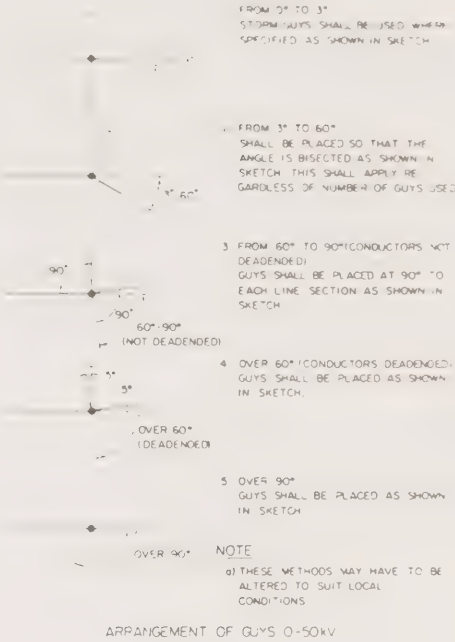 FROM 0° TO 3°
STORM GUYS SHALL BE USED WHERE
SPECIFIED AS SHOWN IN SKETCH
FROM 3° TO 60°
SHALL BE PLACED SO THAT THE
ANGLE IS BISECTED AS SHOWN IN
SKETCH THIS SHALL APPLY RE
GARDLESS OF NUMBER OF GUYS USED
3°-60°
3 FROM 60° TO 90° (CONDUCTORS NOT
DEADENDED)
GUYS SHALL BE PLACED AT 90° TO
EACH LINE SECTION AS SHOWN IN
SKETCH
90°
90°
60°-90°
(NOT DEADENDED)
4 OVER 60° (CONDUCTORS DEADENDED)
GUYS SHALL BE PLACED AS SHOWN
IN SKETCH.
5°
5°
OVER 60°
(DEADENDED)
5 OVER 90°
GUYS SHALL BE PLACED AS SHOWN
IN SKETCH
OVER 90°
NOTE
a) THESE METHODS MAY HAVE TO BE
ALTERED TO SUIT LOCAL
CONDITIONS
ARRANGEMENT OF GUYS 0-50kV